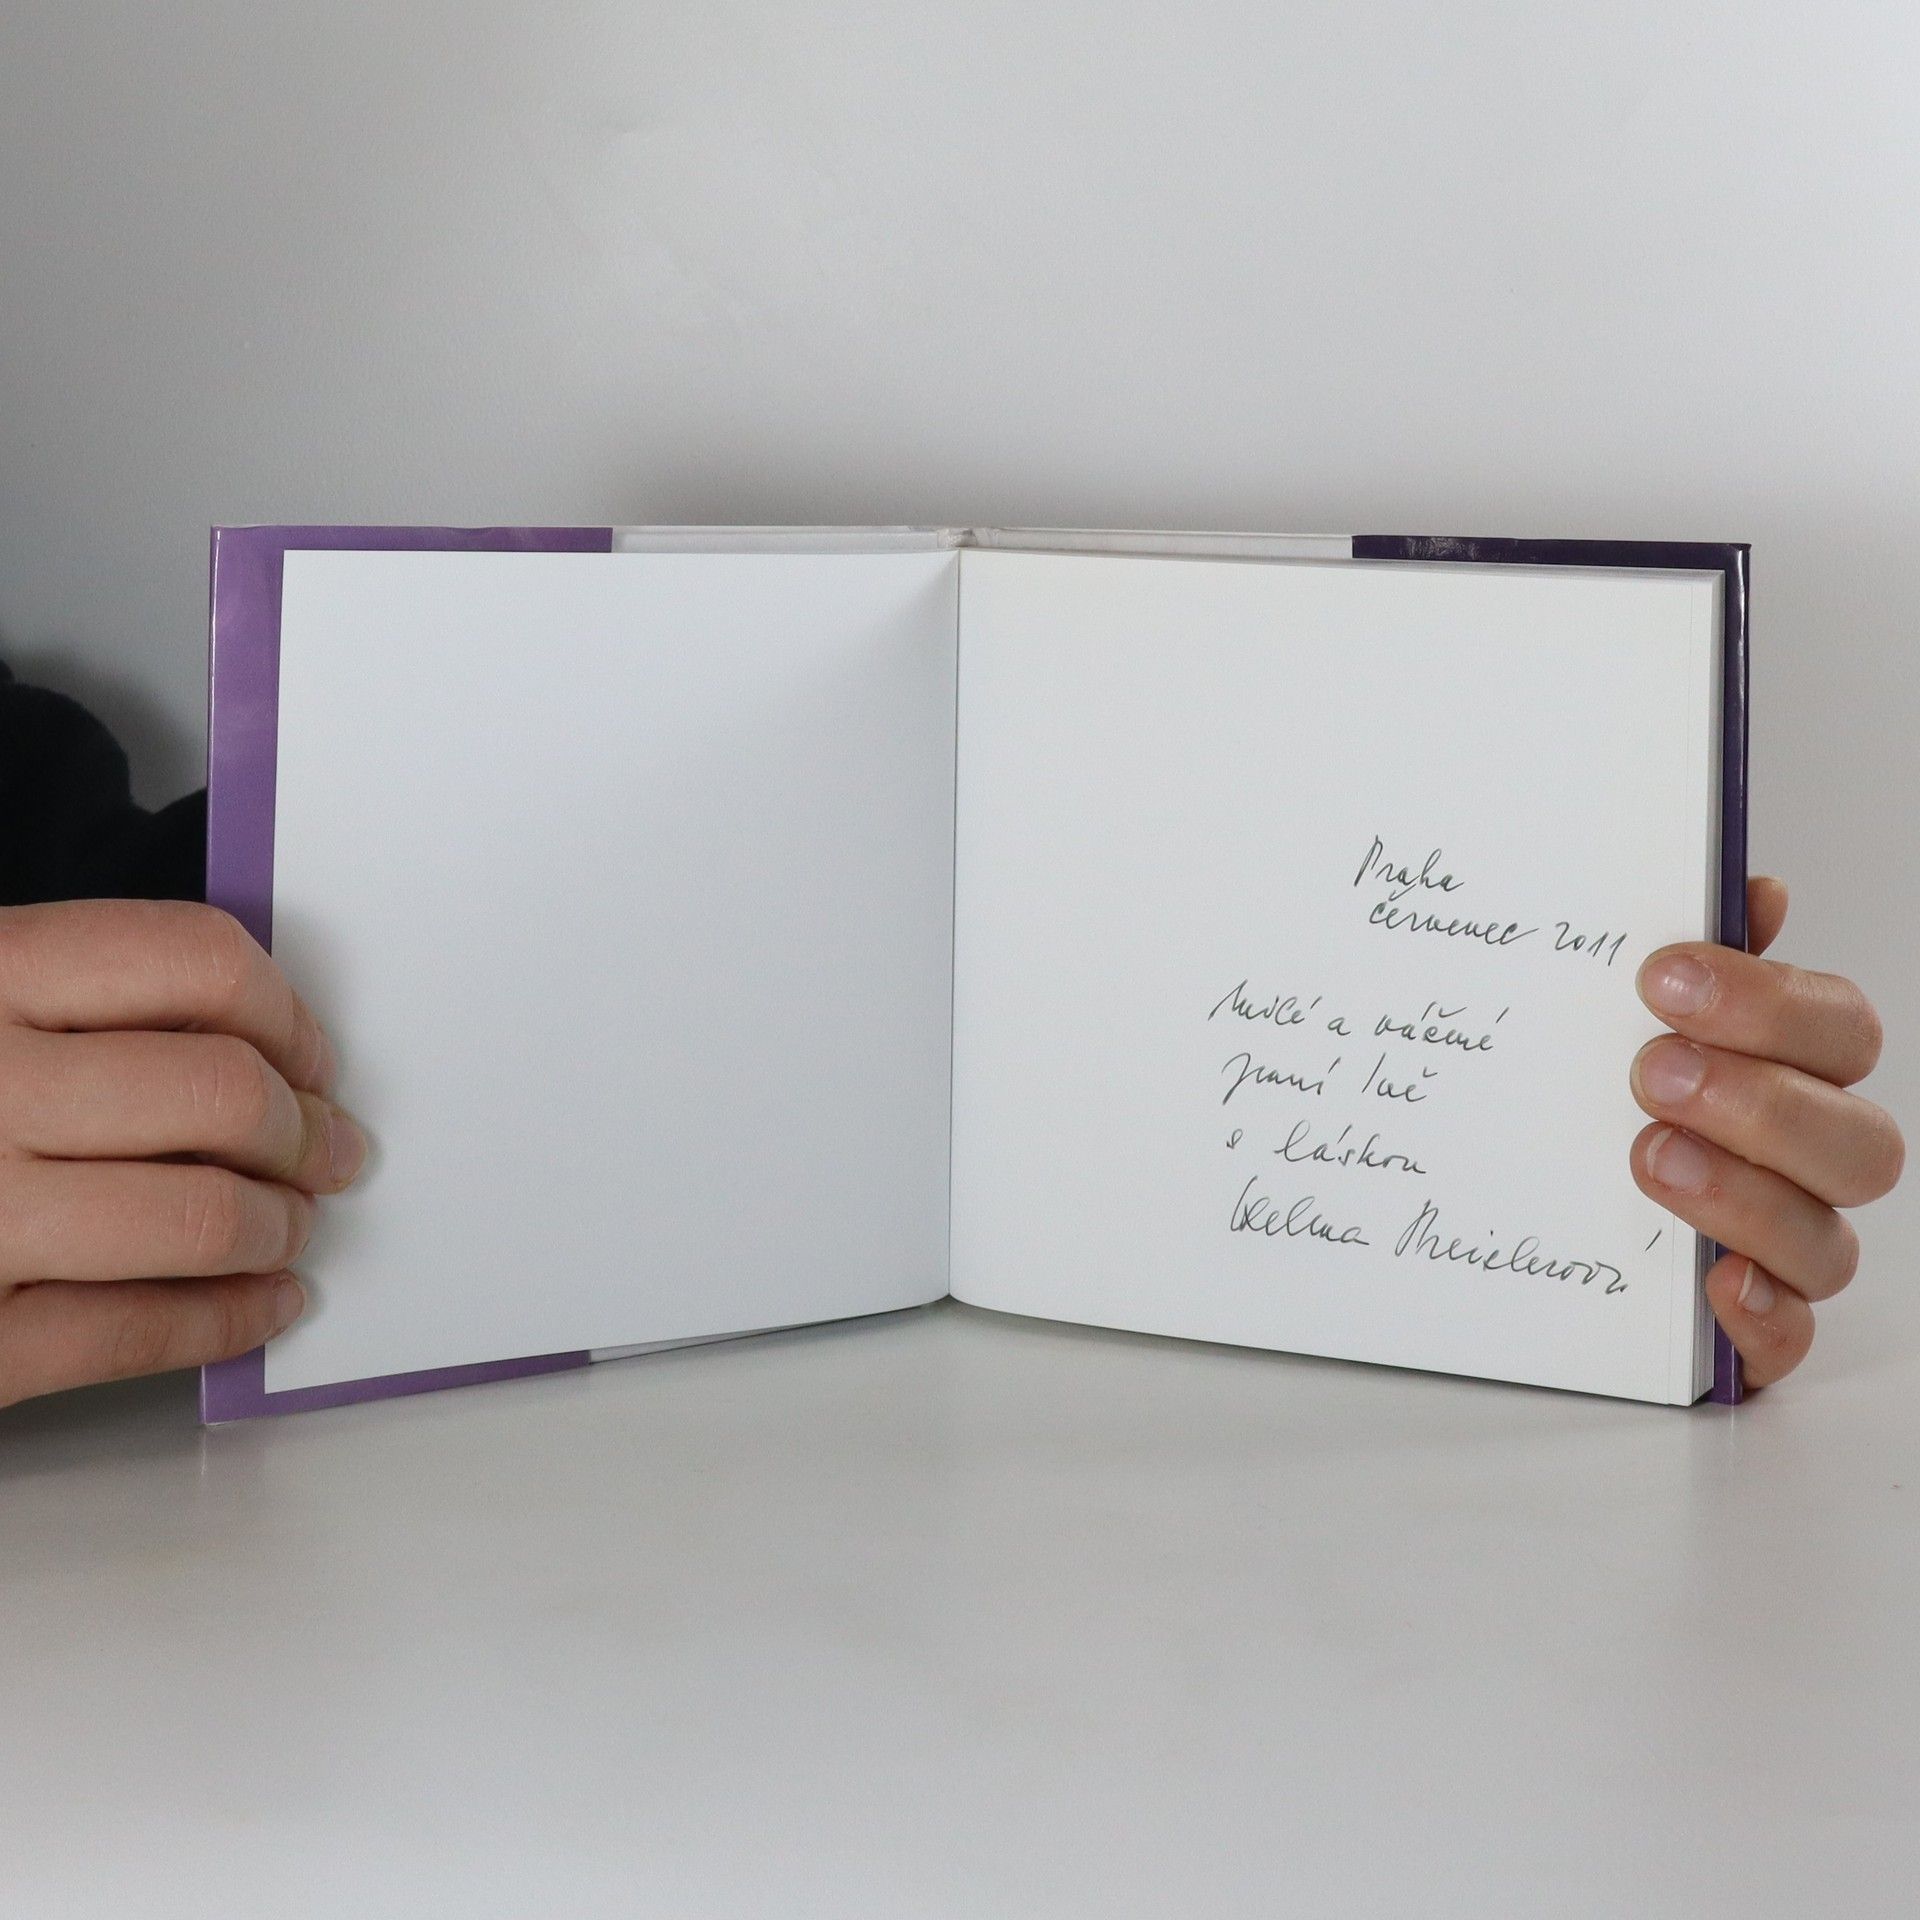 Praha
červenec 2011
milé a vážené
paní Ivě
s láskou
Helma